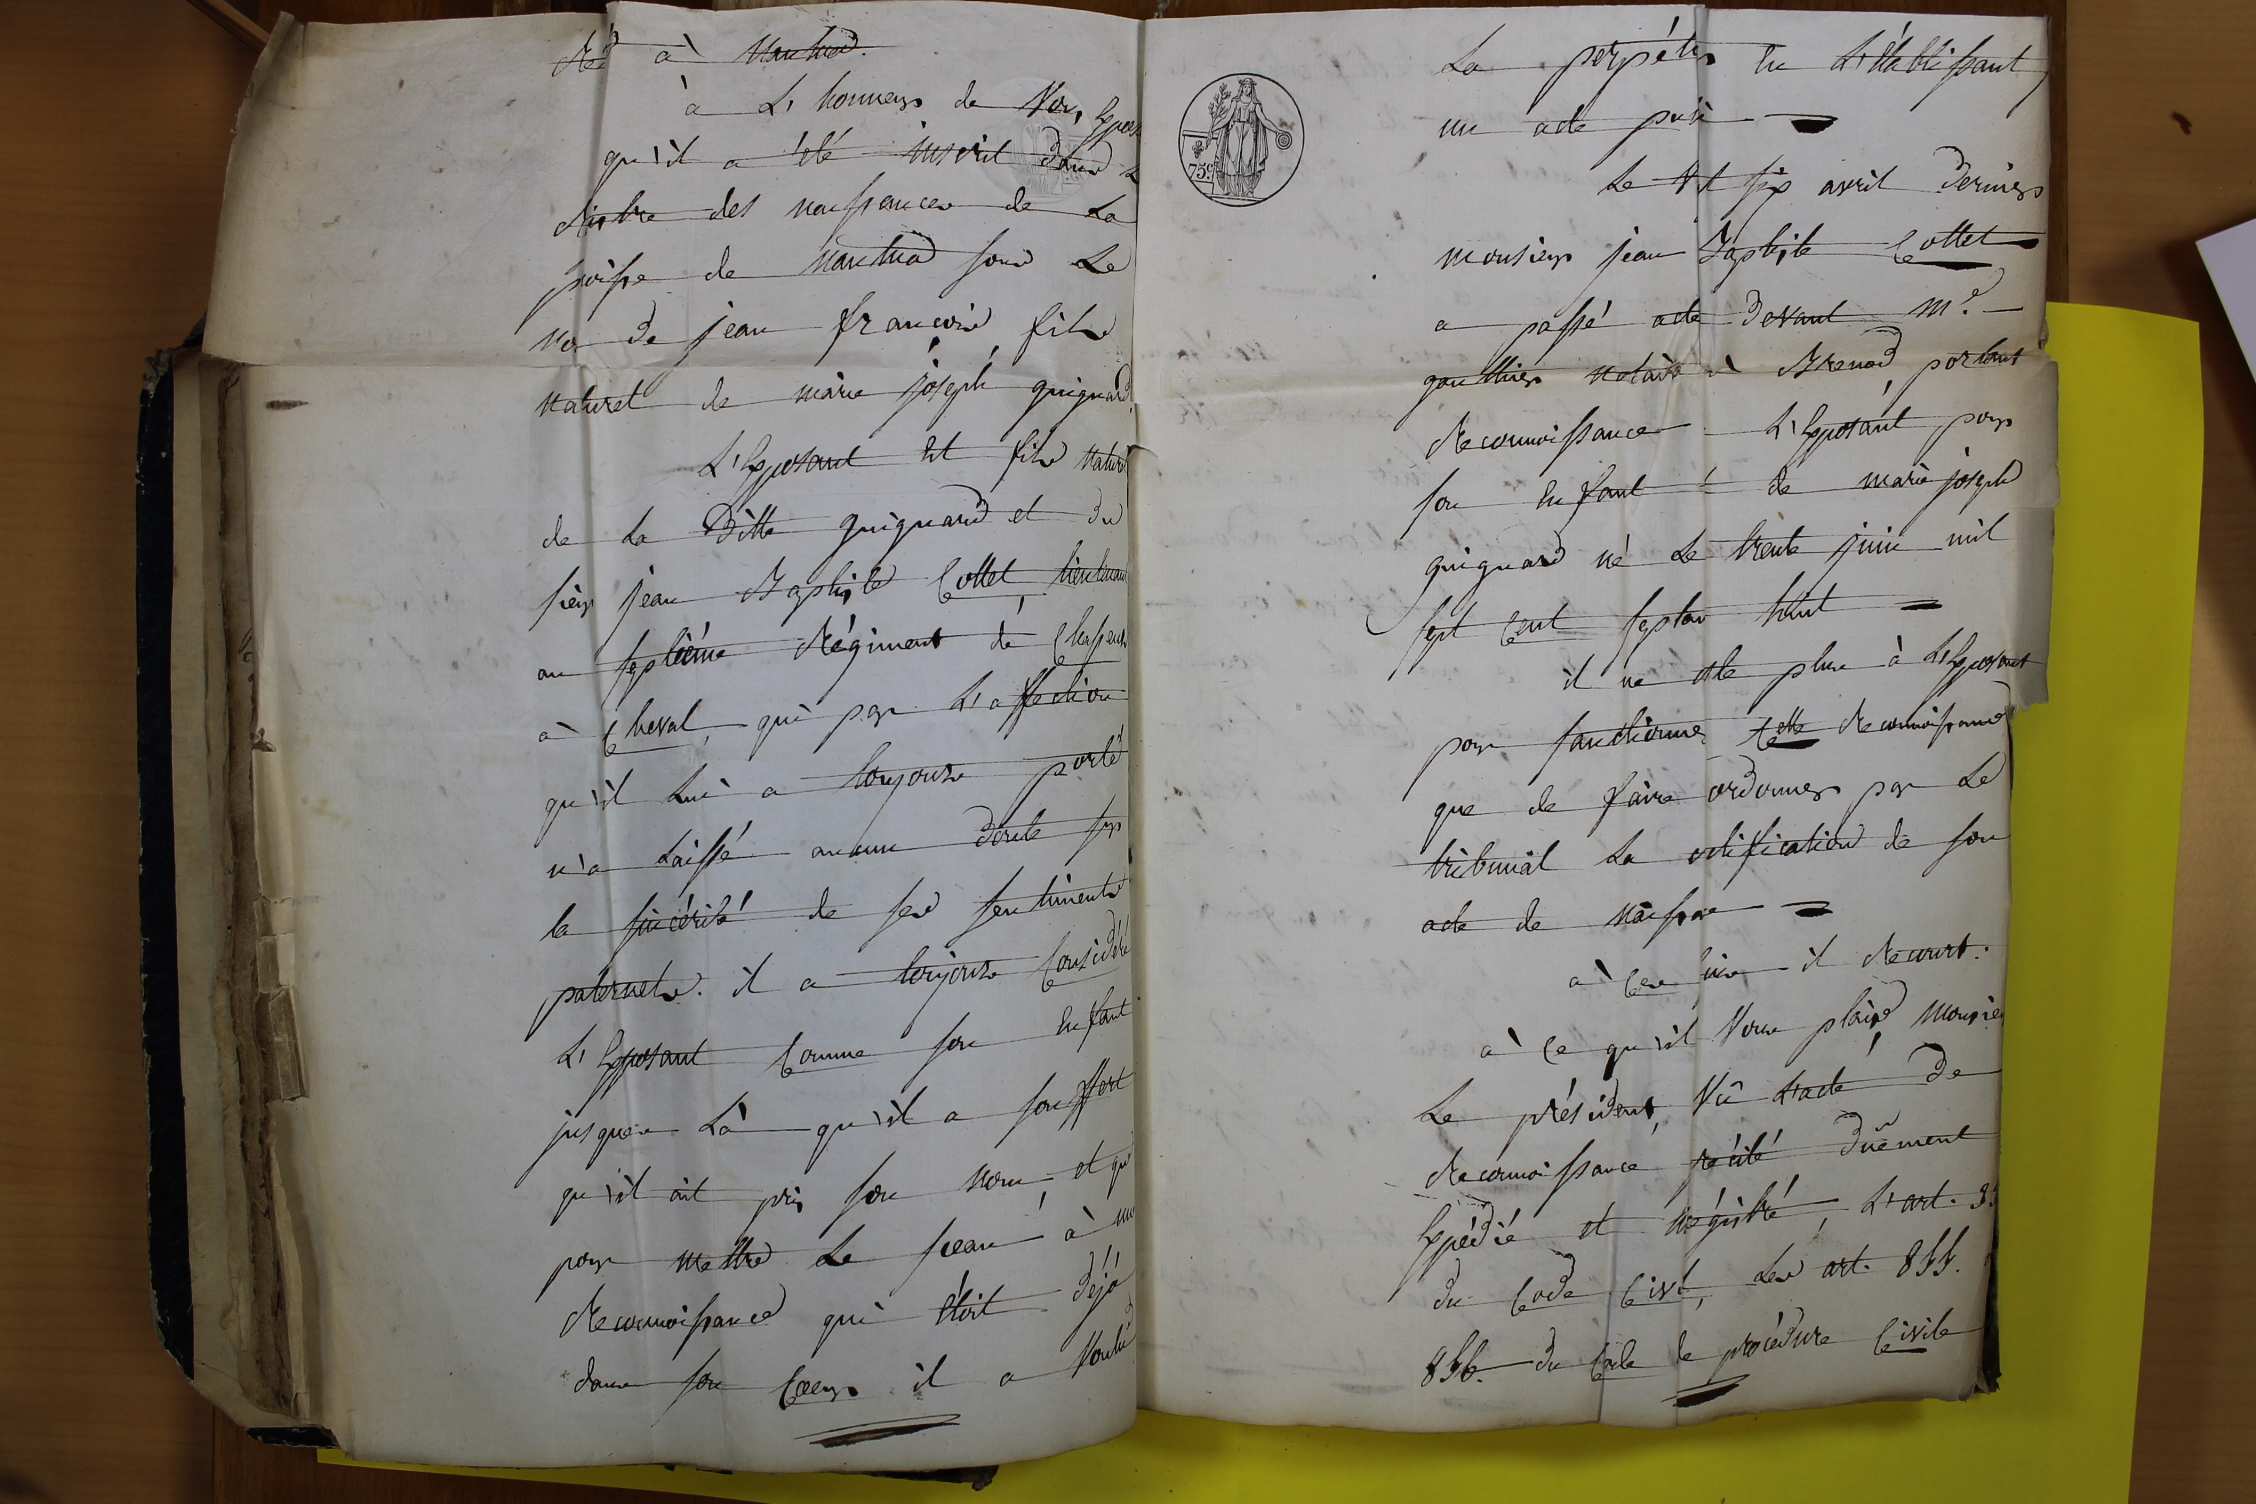 né à Nantua.
à L'honneur de Vous Expos
qu'il a été inscrit dans L
Ristre des naissances de La
poisse de Nantua sous Le
no de jean françois fils
naturel de marie joseph guignard.
L'Exposant est fils naturel
de La Ditte guignard et du
sieur jean Baptiste Cottet, lieutenant
au septième Régiment de Chasseurs
à Cheval, qui par L'affection
qu'il Lui a toujours porté
n'a Laissé aucun doute sur
la sincérité de ses sentiments
paternels. il a toujours Considéré
L'Exposant Comme son Enfant
jusques Là qu'il a souffert
qu'il ait pris son nom, et qu
pour mettre Le sceau à une
Reconnoissance qui étoit déjà
dans son Cœur il a voulu
La perpétuer en L'établissant
un acte public
75c
Le Vt six avril dernier
monsieur jean Baptiste Cottet
a passé acte devant Me.
gouthier notaire à Brenod, portant
Reconnoissance L'Exposant pour
son Enfant & de marie joseph
guignard né Le trente juin mil
sept Cent septan huit
il ne Reste plus à L'Exposant
pour sanctionner Cette Reconnoissance
que de faire ordonner par Le
tribunal La rectification de son
acte de naissance
à Ces fins il Recourt.
à Ce qu'il Vous plaise, Monsieur
Le président, Vû L'acte De
Reconnoissance précité Duement
Expédié et enrégistré, L'art.
du Code Civil, Les art. 855.
856. du Code de procédure Civile